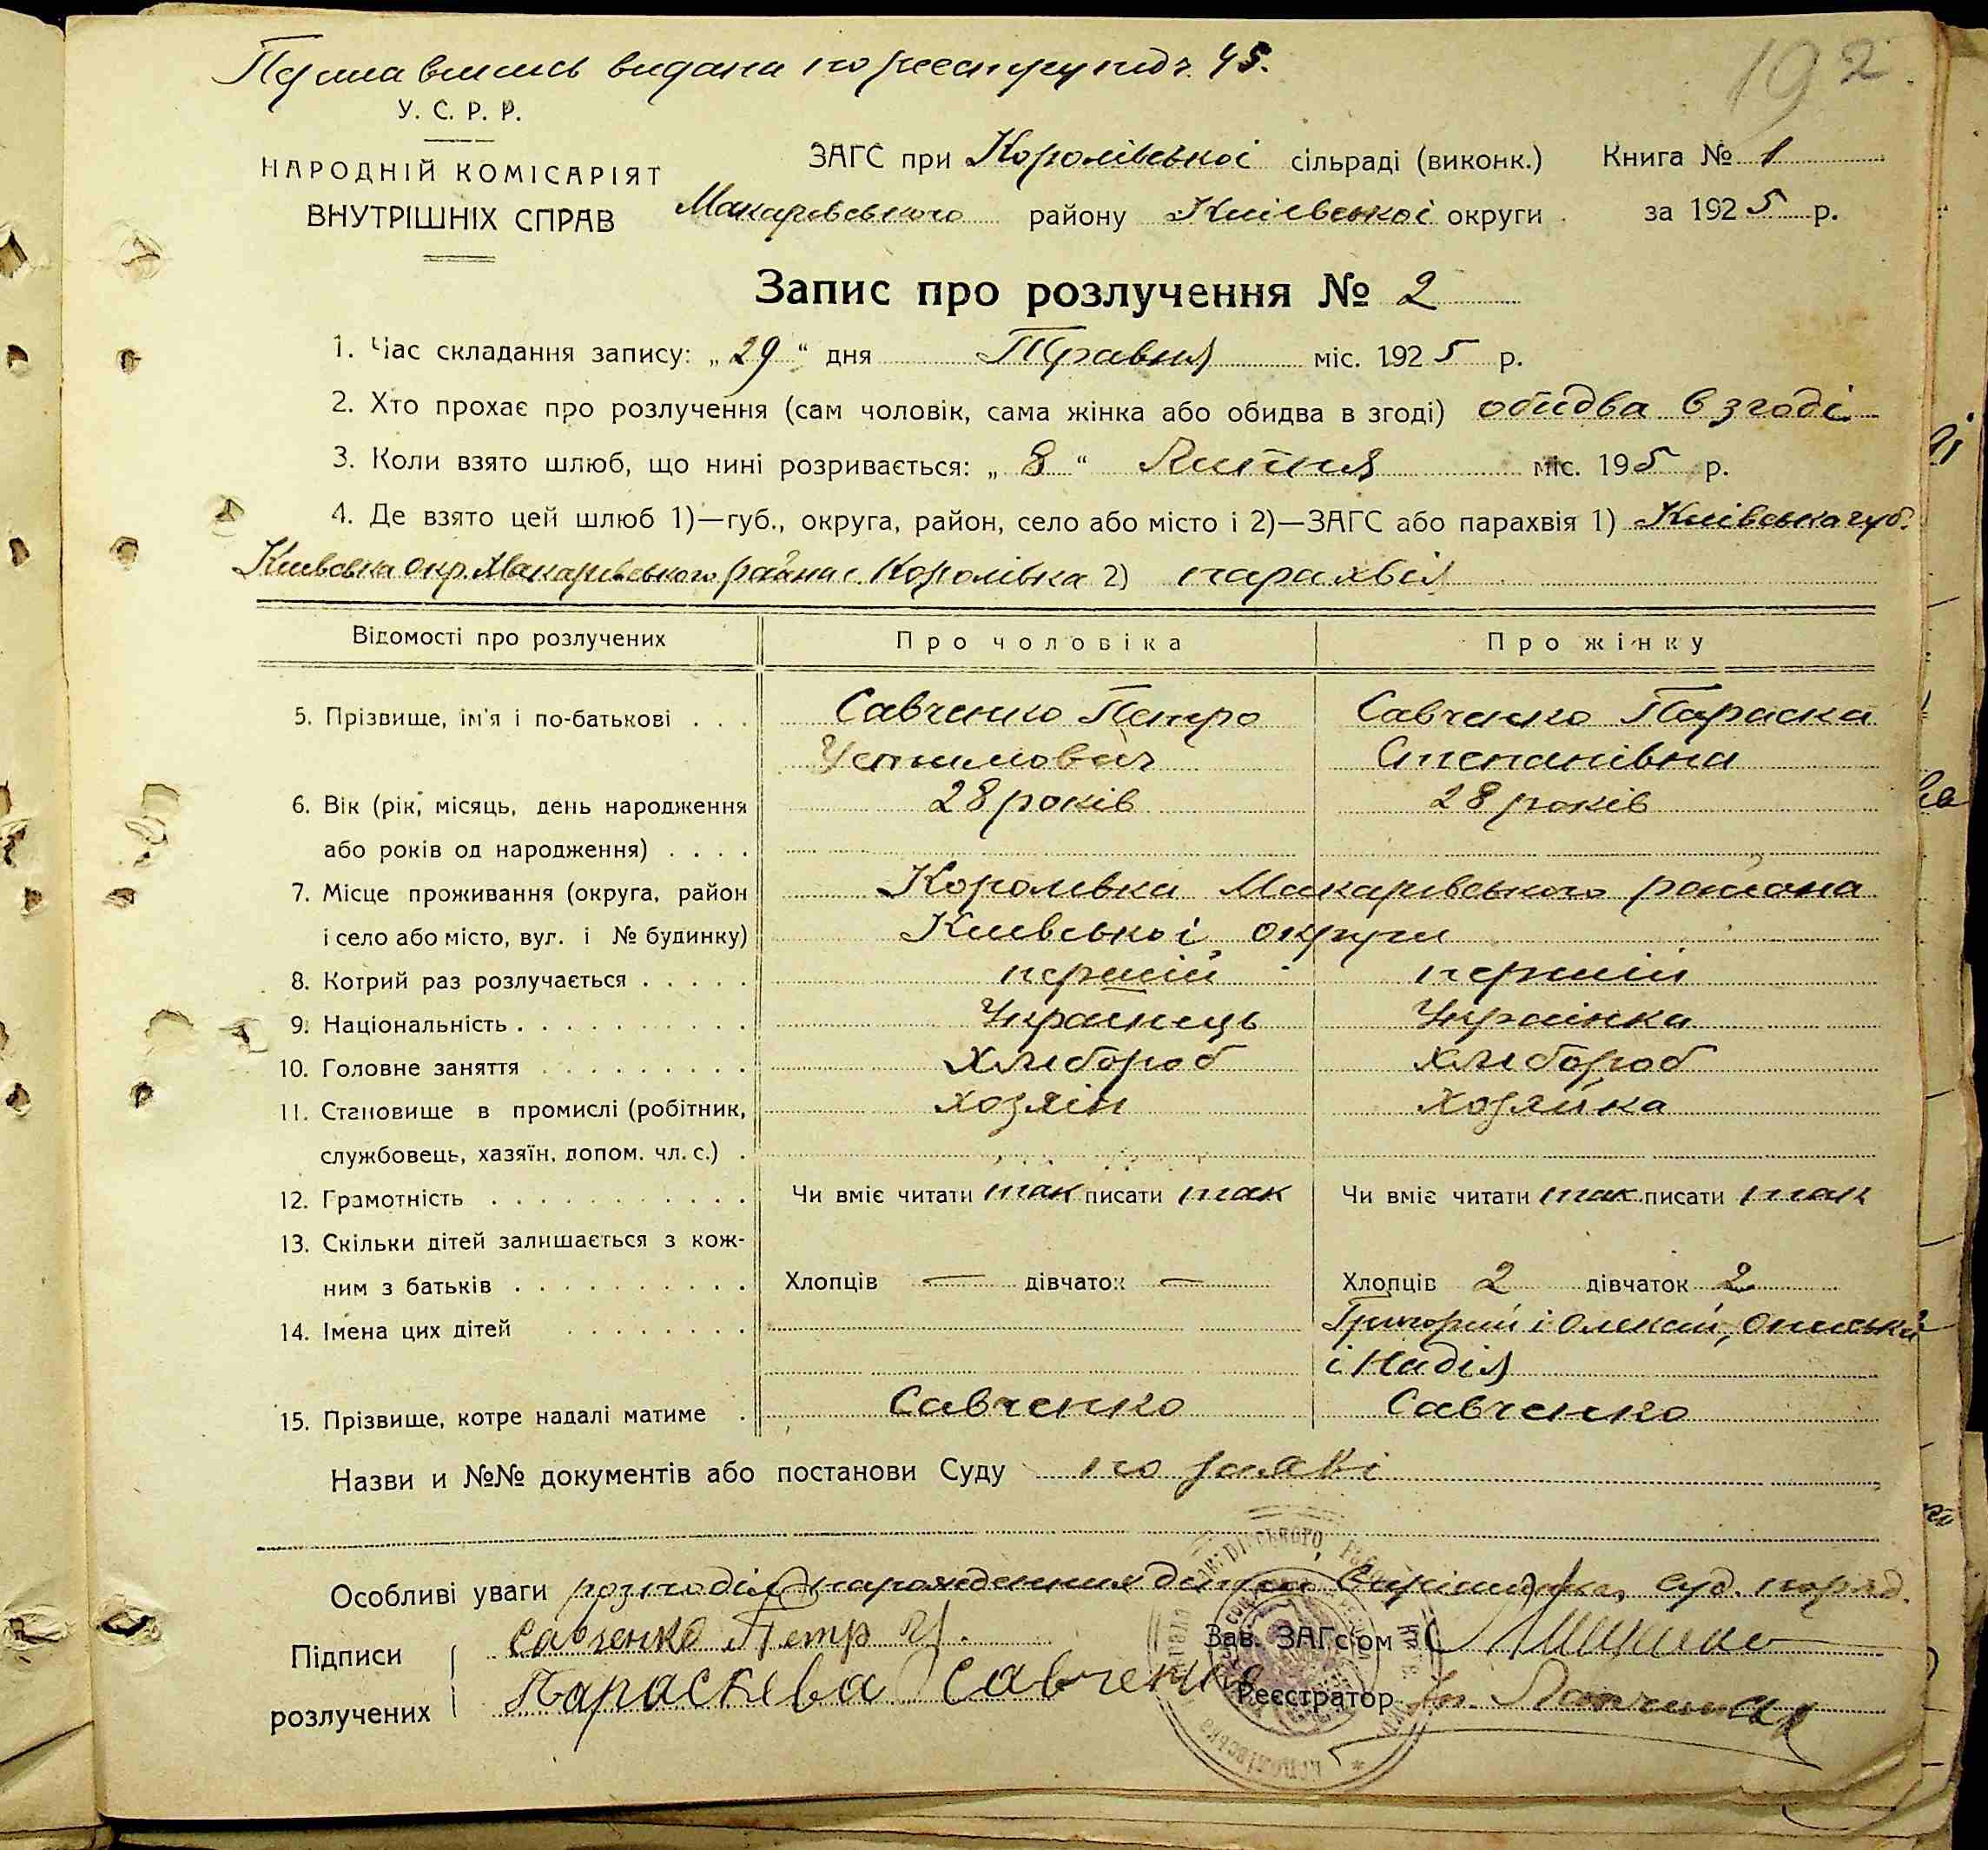 Перша випись видана по реєстру під ч. 45.
192
У. С. Р. Р.
НАРОДНІЙ КОМІСАРІЯТ
ВНУТРІШНІХ СПРАВ
ЗАГС при Королівської сільраді (виконк.) Книга № 1
Макарівського району Київської округи за 1925 р.
Запис про розлучення № 2
1. Час складання запису: „29“ дня Травня міс. 1925 р.
2. Хто прохає про розлучення (сам чоловік, сама жінка або обидва в згоді) обидва в згоді
3. Коли взято шлюб, що нині розривається: „8“ Липня міс. 195 р.
4. Де взято цей шлюб 1)—губ., округа, район, село або місто і 2)—ЗАГС або парахвія 1) Київська губ.
Київська окр. Макарівського району с. Королівка 2) парахвія
Відомості про розлучених Про чоловіка Про жінку
5. Прізвище, ім'я і по-батькові . . . Савченко Петро Савченко Параска
Устимович Степанівна
6. Вік (рік, місяць, день народження 28 років 28 років
або років од народження) . . . .
7. Місце проживання (округа, район Королівка Макарівського района
і село або місто, вул. і № будинку) Київської округи
8. Котрий раз розлучається . . . . . перший перший
9. Національність . . . . . . . . . . Українець Українка
10. Головне заняття . . . . . . . . . Хлібороб Хлібороб
11. Становище в промислі (робітник, хозяін хозяйка
службовець, хазяїн, допом. чл. с.) .
12. Грамотність . . . . . . . . . . . Чи вміє читати так писати так Чи вміє читати так писати так
13. Скільки дітей залишається з кож-
ним з батьків . . . . . . . . . . Хлопців — дівчаток — Хлопців 2 дівчаток 2
14. Імена цих дітей . . . . . . . . Григорий і Олексій, Ониська
і Надія
15. Прізвище, котре надалі матиме . Савченко Савченко
Назви и №№ документів або постанови Суду по заяві
Особливі уваги розподіл народженних дітей суд. поряд.
Підписи Савченко Петр У. Зав. ЗАГс'ом
розлучених Параскева Савченко Реєстратор